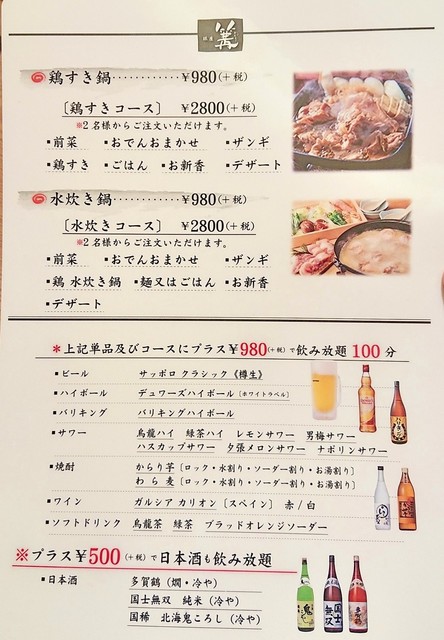 篝
鶏すき鍋‥‥‥‥‥¥980(+税)
〔鶏すきコース〕 ¥2800(+税)
※2名様からご注文いただけます。
▪前菜 ▪おでんおまかせ ▪ザンギ
▪鶏すき ▪ごはん ▪お新香 ▪デザート
水炊き鍋‥‥‥‥‥¥980(+税)
〔水炊きコース〕 ¥2800(+税)
※2名様からご注文いただけます。
▪前菜 ▪おでんおまかせ ▪ザンギ
▪鶏 水炊き鍋 ▪麺又はごはん ▪お新香
▪デザート
*上記単品及びコースにプラス¥980(+税)で飲み放題 100分
▪ビール サッポロ クラシック《樽生》
▪ハイボール デュワーズハイボール〔ホワイトラベル〕
▪バリキング バリキングハイボール
▪サワー 烏龍ハイ 緑茶ハイ レモンサワー 男梅サワー
ハスカップサワー 夕張メロンサワー ナポリンサワー
▪焼酎 からり芋〔ロック・水割り・ソーダー割り・お湯割り〕
わら麦〔ロック・水割り・ソーダー割り・お湯割り〕
▪ワイン ガルシア カリオン〔スペイン〕 赤/白
▪ソフトドリンク 烏龍茶 緑茶 ブラッドオレンジソーダー
※プラス¥500(+税)で日本酒も飲み放題
▪日本酒 多賀鶴(燗・冷や)
国士無双 純米(冷や)
国稀 北海鬼ころし(冷や)